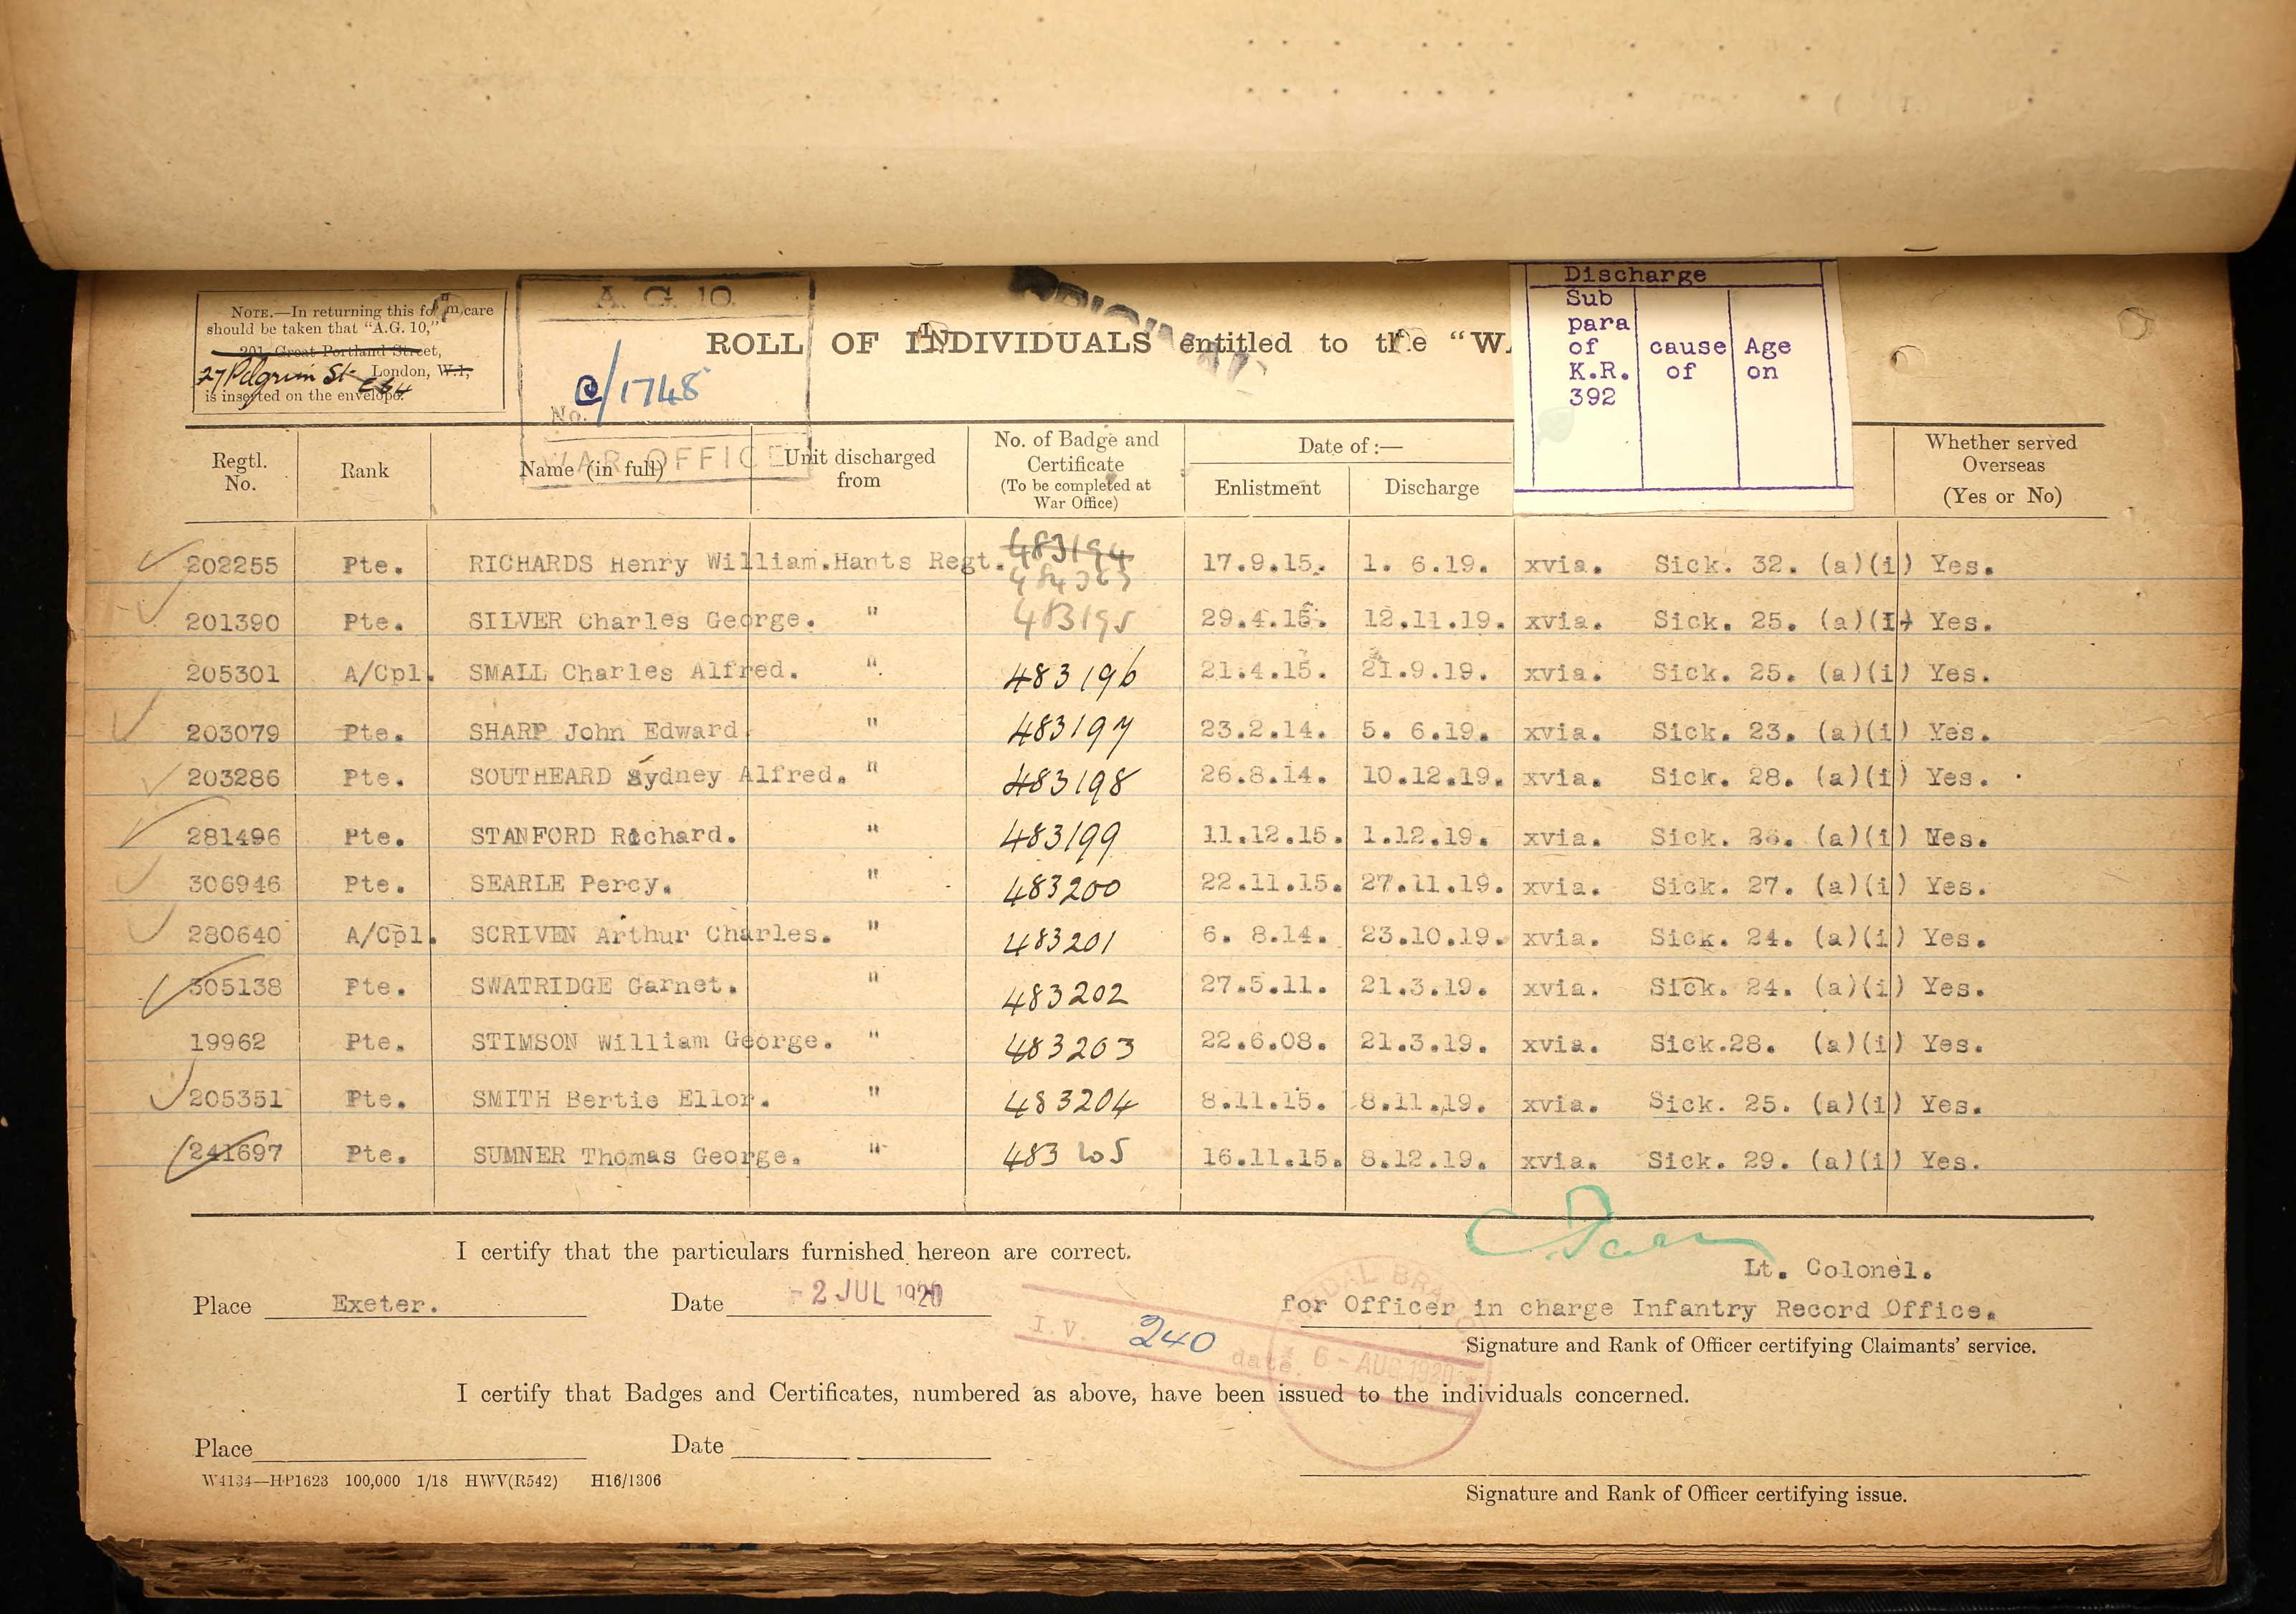 NOTE.—In returning this form, care
should be taken that "A.G. 10,"
201, Great Portland Street,
27 Pilgrim St. London, W.1, EC4
is inserted on the envelope.
A. G. 10.
No. C/1748
WAR OFFICE
ROLL OF INDIVIDUALS entitled to the "WA
Discharge
Sub para of K.R. 392
cause of
Age on
Regtl. No.
Rank
Name (in full)
Unit discharged from
No. of Badge and Certificate (To be completed at War Office)
Date of :—
Enlistment
Discharge
Whether served Overseas (Yes or No)
202255 Pte. RICHARDS Henry William. Hants Regt. 483194 17.9.15. 1. 6.19. xvia. Sick. 32. (a)(i) Yes.
201390 Pte. SILVER Charles George. " 483195 29.4.15. 12.11.19. xvia. Sick. 25. (a)(I) Yes.
205301 A/Cpl. SMALL Charles Alfred. " 483196 21.4.15. 21.9.19. xvia. Sick. 25. (a)(i) Yes.
203079 Pte. SHARP John Edward " 483197 23.2.14. 5. 6.19. xvia. Sick. 23. (a)(i) Yes.
203286 Pte. SOUTHEARD Sydney Alfred. " 483198 26.8.14. 10.12.19. xvia. Sick. 28. (a)(i) Yes.
281496 Pte. STANFORD Richard. " 483199 11.12.15. 1.12.19. xvia. Sick. (a)(i) Yes.
306946 Pte. SEARLE Percy. " 483200 22.11.15. 27.11.19. xvia. Sick. 27. (a)(i) Yes.
280640 A/Cpl. SCRIVEN Arthur Charles. " 483201 6. 8.14. 23.10.19. xvia. Sick. 24. (a)(i) Yes.
305138 Pte. SWATRIDGE Garnet. " 483202 27.5.11. 21.3.19. xvia. Sick. 24. (a)(i) Yes.
19962 Pte. STIMSON William George. " 483203 22.6.08. 21.3.19. xvia. Sick.28. (a)(i) Yes.
205351 Pte. SMITH Bertie Ellor. " 483204 8.11.15. 8.11.19. xvia. Sick. 25. (a)(i) Yes.
241697 Pte. SUMNER Thomas George. " 483205 16.11.15. 8.12.19. xvia. Sick. 29. (a)(i) Yes.
I certify that the particulars furnished hereon are correct.
Lt. Colonel.
Place Exeter. Date - 2 JUL 1920
for Officer in charge Infantry Record Office.
Signature and Rank of Officer certifying Claimants' service.
I.V. 240 date. 6 - AUG 1920
I certify that Badges and Certificates, numbered as above, have been issued to the individuals concerned.
Place Date
W4134—HP1623 100,000 1/18 HWV(R542) H16/1306
Signature and Rank of Officer certifying issue.